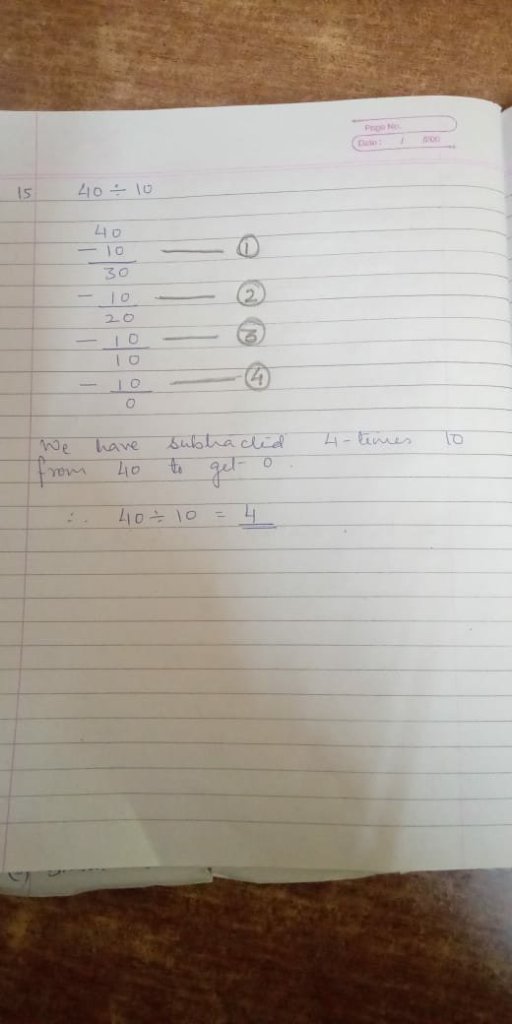 Page No.
Date: /
15 40 ÷ 10
40
- 10 —— ①
30
- 10 —— ②
20
- 10 —— ③
10
- 10 —— ④
0
We have subtracted 4-times 10
from 40 to get 0.
∴ 40 ÷ 10 = 4